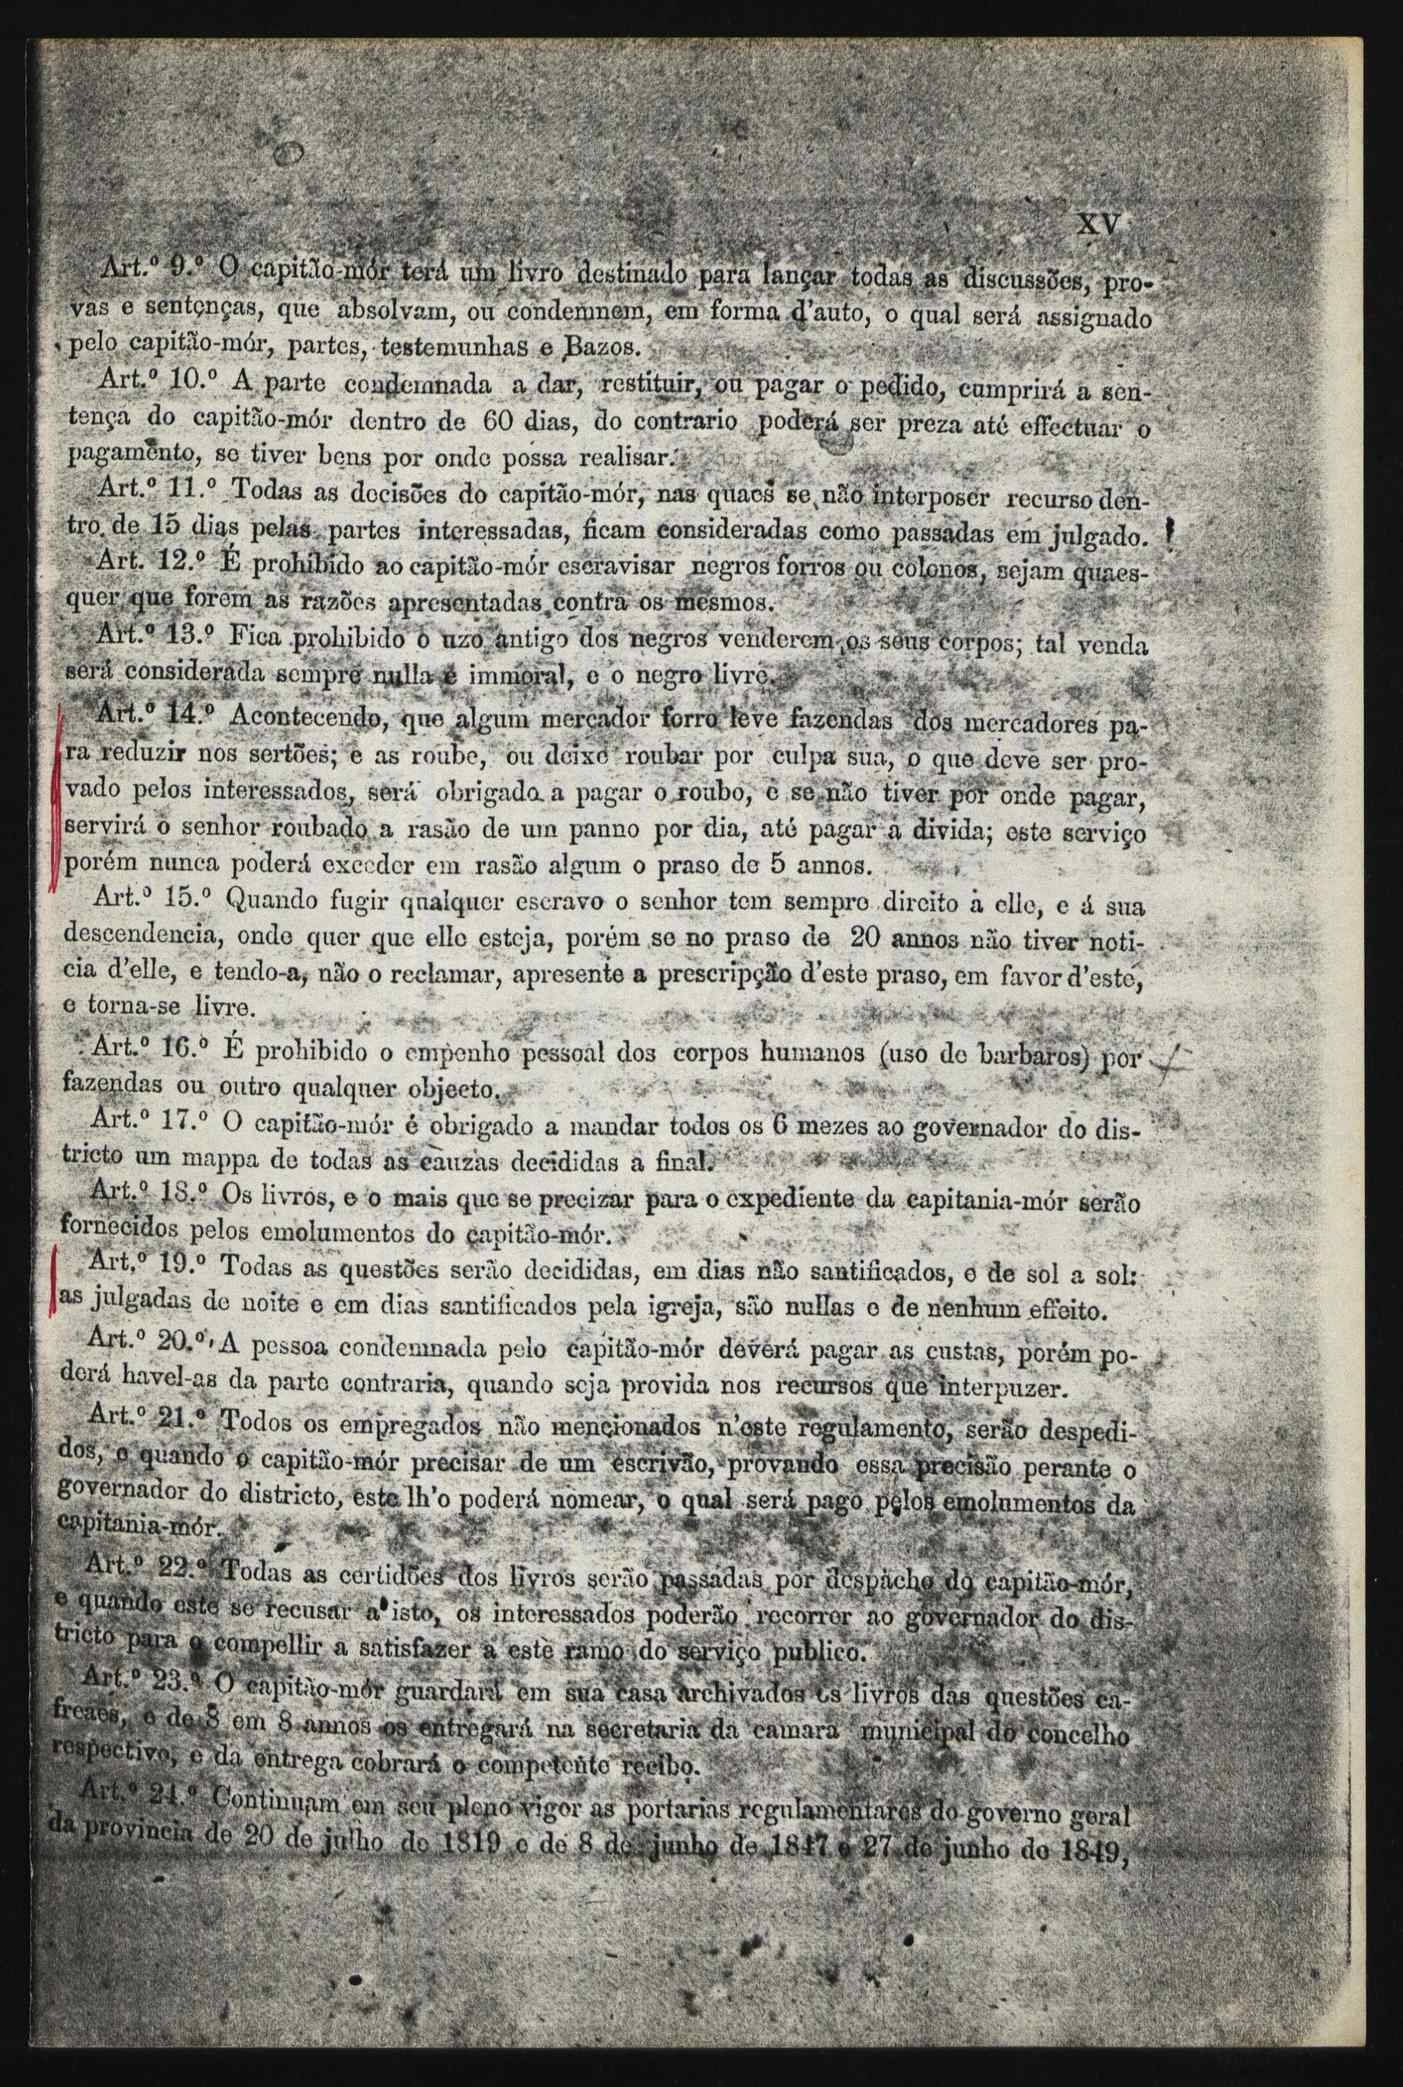 XV
Art.º 9.º O capitão-mór terá um livro destinado para lançar todas as discussões, pro-
vas e sentenças, que absolvam, ou condemnem, em forma d'auto, o qual será assignado
pelo capitão-mór, partes, testemunhas e Bazos.
Art.º 10.º A parte condemnada a dar, restituir, ou pagar o pedido, cumprirá a sen-
tença do capitão-mór dentro de 60 dias, do contrario poderá ser preza até effectuar o
pagamento, se tiver bens por onde possa realisar.
Art.º 11.º Todas as decisões do capitão-mór, nas quaes se não interposer recurso den-
tro de 15 dias pelas partes interessadas, ficam consideradas como passadas em julgado.
Art. 12.º É prohibido ao capitão-mór escravisar negros forros ou colonos, sejam quaes-
quer que forem as razões apresentadas contra os mesmos.
Art.º 13.º Fica prohibido o uzo antigo dos negros venderem os seus corpos; tal venda
será considerada sempre nulla e immoral, e o negro livre.
Art.º 14.º Acontecendo, que algum mercador forro leve fazendas dos mercadores pa-
ra reduzir nos sertões; e as roube, ou deixe roubar por culpa sua, o que deve ser pro-
vado pelos interessados, será obrigado a pagar o roubo, e se não tiver por onde pagar,
servirá o senhor roubado a rasão de um panno por dia, até pagar a divida; este serviço
porém nunca poderá exceder em rasão algum o praso de 5 annos.
Art.º 15.º Quando fugir qualquer escravo o senhor tem sempre direito à elle, e á sua
descendencia, onde quer que elle esteja, porém se no praso de 20 annos não tiver noti-
cia d'elle, e tendo-a, não o reclamar, apresente a prescripção d'este praso, em favor d'este,
e torna-se livre.
Art.º 16.º É prohibido o empenho pessoal dos corpos humanos (uso de barbaros) por
fazendas ou outro qualquer objecto.
Art.º 17.º O capitão-mór é obrigado a mandar todos os 6 mezes ao governador do dis-
tricto um mappa de todas as cauzas decididas a final.
Art.º 18.º Os livros, e o mais que se precizar para o expediente da capitania-mór serão
fornecidos pelos emolumentos do capitão-mór.
Art.º 19.º Todas as questões serão decididas, em dias não santificados, e de sol a sol:
as julgadas de noite e em dias santificados pela igreja, são nullas e de nenhum effeito.
Art.º 20.º A pessoa condemnada pelo capitão-mór deverá pagar as custas, porém po-
derá havel-as da parte contraria, quando seja provida nos recursos que interpuzer.
Art.º 21.º Todos os empregados não mencionados n'este regulamento, serão despedi-
dos, e quando o capitão-mór precisar de um escrivão, provando essa precisão perante o
governador do districto, este lh'o poderá nomear, o qual será pago pelos emolumentos da
capitania-mór.
Art.º 22.º Todas as certidões dos livros serão passadas por despacho do capitão-mór,
e quando este se recusar a isto, os interessados poderão recorrer ao governador do dis-
tricto para o compellir a satisfazer a este ramo do serviço publico.
Art.º 23.º O capitão-mór guardará em sua casa archivados os livros das questões ca-
freaes, e de 8 em 8 annos os entregará na secretaria da camara municipal do concelho
respectivo, e da entrega cobrará o competente recibo.
Art.º 24.º Continuam em seu pleno vigor as portarias regulamentares do governo geral
da provincia de 20 de julho de 1819 e de 8 de junho de 1847 e 27 de junho de 1849,